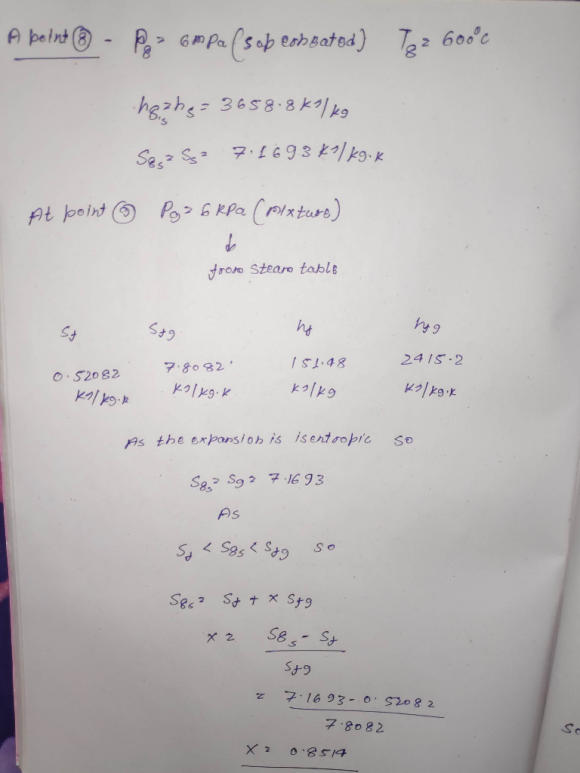 A point ⑧ - P8 = 6mpa (sup eroheated) T8 = 600°C
h8s = hs = 3658.8 KJ/kg
S8s = Ss = 7.1693 KJ/kg.k
At point ⑨ P9 = 6 KPa (Mixture)
↓
from steam table
Sf Sfg hf hfg
0.52082 7.8082 151.48 2415.2
KJ/kg.k KJ/kg.k KJ/kg KJ/kg.k
As the expansion is isentropic so
S8s = S9 = 7.1693
As
Sf < S8s < Sfg so
S8s = Sf + x Sfg
x = S8s - Sf
Sfg
= 7.1693 - 0.52082
7.8082
x = 0.8514